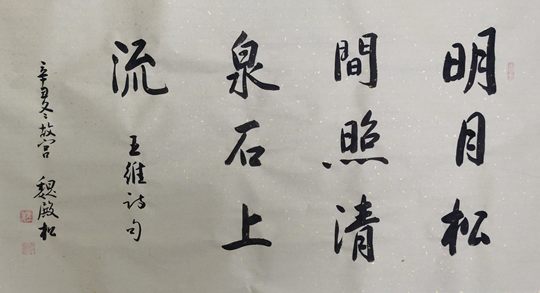 明月松
間照清
泉石上
流
王維詩句
辛丑冬故宫 魏殿松